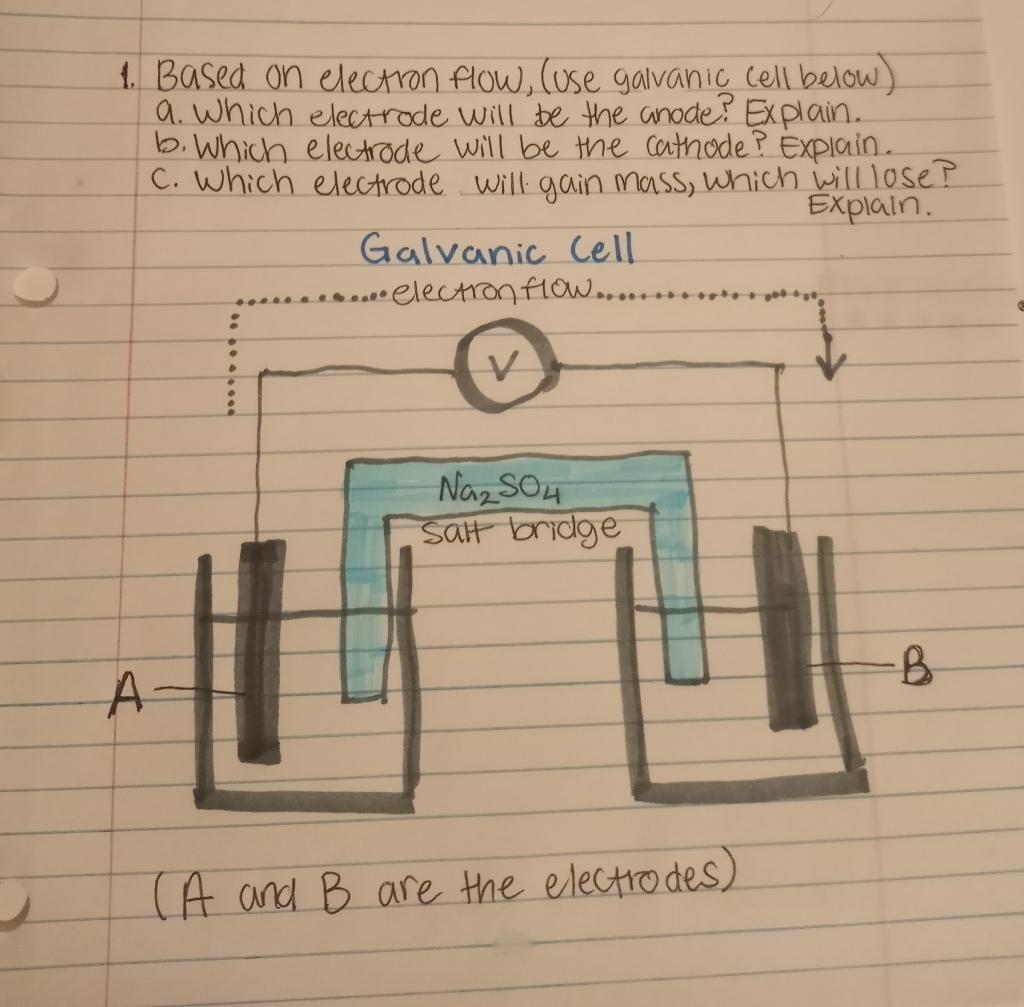 1. Based on electron flow, (use galvanic cell below)
a. Which electrode will be the anode? Explain.
b. Which electrode will be the cathode? Explain.
c. Which electrode will gain mass, which will lose?
Explain.
Galvanic Cell
electron flow
V
Na₂SO₄
Salt bridge
A
B
(A and B are the electrodes)